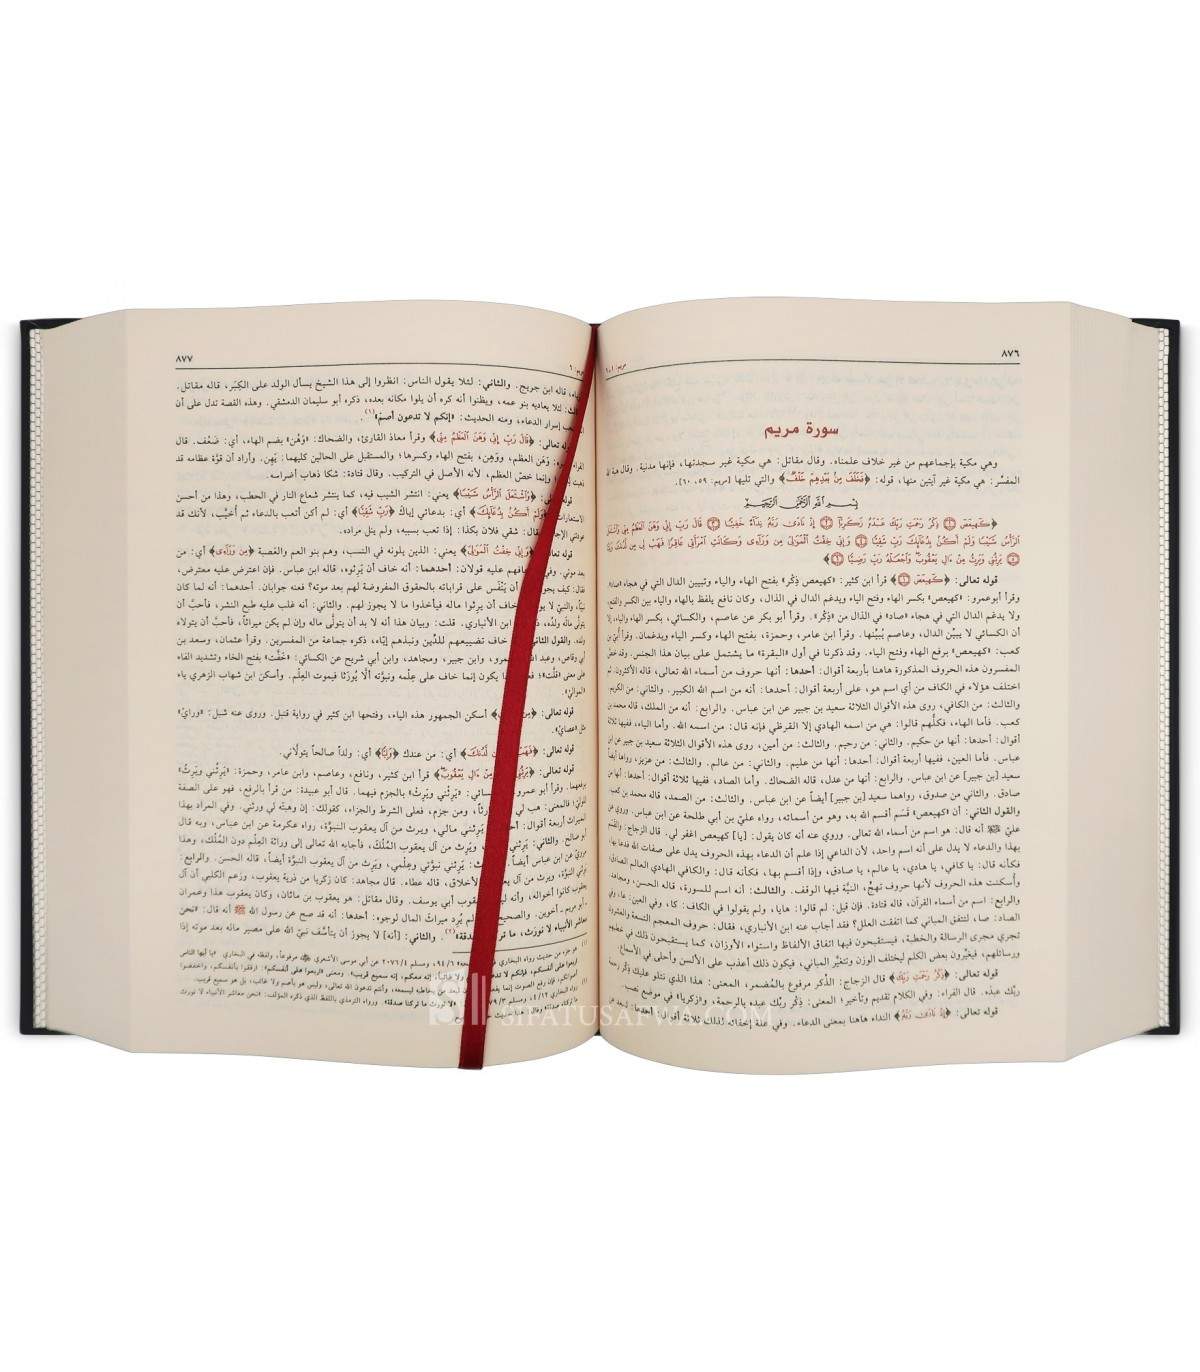 ٨٧٦
سورة مريم
وهي مكية بإجماعهم من غير خلاف علمناه. وقال مقاتل: هي مكية غير سجدتها، فإنها مدنية. وقال هبة الله
المفسِّر: هي مكية غير آيتين منها، قوله: ﴿فَخَلَفَ مِنْ بَعْدِهِمْ خَلْفٌ﴾ والتي تليها [مريم: ٥٩، ٦٠].
بِسْمِ اللَّهِ الرَّحْمَٰنِ الرَّحِيمِ
﴿كٓهيعٓصٓ ١ ذِكْرُ رَحْمَتِ رَبِّكَ عَبْدَهُ زَكَرِيَّا ٢ إِذْ نَادَىٰ رَبَّهُ نِدَاءً خَفِيًّا ٣ قَالَ رَبِّ إِنِّي وَهَنَ الْعَظْمُ مِنِّي وَاشْتَعَلَ
الرَّأْسُ شَيْبًا وَلَمْ أَكُنْ بِدُعَائِكَ رَبِّ شَقِيًّا ٤ وَإِنِّي خِفْتُ الْمَوَالِيَ مِنْ وَرَاءِي وَكَانَتِ امْرَأَتِي عَاقِرًا فَهَبْ لِي مِنْ لَدُنْكَ وَلِيًّا
٥ يَرِثُنِي وَيَرِثُ مِنْ آلِ يَعْقُوبَ وَاجْعَلْهُ رَبِّ رَضِيًّا ٦﴾
قوله تعالى: ﴿كٓهيعٓصٓ ١﴾ قرأ ابن كثير: «كهيعص ذِكْر» بفتح الهاء والياء وتبيين الدال التي في هجاء «صاد».
وقرأ أبو عمرو: «كهيعص» بكسر الهاء وفتح الياء ويدغم الدال في الذال، وكان نافع يلفظ بالهاء والياء بين الكسر والفتح،
ولا يدغم الدال التي في هجاء «صاد» في الذال من «ذِكْر». وقرأ أبو بكر عن عاصم، والكسائي، بكسر الهاء والياء، إلا
أن الكسائي لا يبيِّن الدال، وعاصم يُبيِّنها. وقرأ ابن عامر، وحمزة، بفتح الهاء وكسر الياء ويدغمان. وقرأ أُبيّ بن
كعب: «كهيعص» برفع الهاء وفتح الياء. وقد ذكرنا في أول «البقرة» ما يشتمل على بيان هذا الجنس. وقد خصّ
المفسرون هذه الحروف المذكورة هاهنا بأربعة أقوال: أحدها: أنها حروف من أسماء الله تعالى، قاله الأكثرون. ثم
اختلف هؤلاء في الكاف من أي اسم هو، على أربعة أقوال: أحدها: أنه من اسم الله الكبير. والثاني: من الكريم.
والثالث: من الكافي، روى هذه الأقوال الثلاثة سعيد بن جبير عن ابن عباس. والرابع: أنه من الملك، قاله محمد بن
كعب. فأما الهاء، فكلُّهم قالوا: هي من اسمه الهادي إلا القرظي فإنه قال: من اسمه الله. وأما الياء، ففيها ثلاثة
أقوال: أحدها: أنها من حكيم. والثاني: من رحيم. والثالث: من أمين، روى هذه الأقوال الثلاثة سعيد بن جبير عن ابن
عباس. فأما العين، ففيها أربعة أقوال: أحدها: أنها من عليم. والثاني: من عالم. والثالث: من عزيز، رواها أيضاً
سعيد [بن جبير] عن ابن عباس. والرابع: أنها من عدل، قاله الضحاك. وأما الصاد، ففيها ثلاثة أقوال: أحدها: أنها من
صادق. والثاني من صدوق، رواهما سعيد [بن جبير] أيضاً عن ابن عباس. والثالث: من الصمد، قاله محمد بن كعب.
والقول الثاني: أن «كهيعص» قَسَم أقسم الله به، وهو من أسمائه، رواه عليّ بن أبي طلحة عن ابن عباس. وروي عن
عليّ ﷺ أنه قال: هو اسم من أسماء الله تعالى. وروي عنه أنه كان يقول: [يا] كهيعص اغفر لي. قال الزجاج: والقَسَم
بهذا والدعاء لا يدل على أنه اسم واحد، لأن الداعي إذا علم أن الدعاء بهذه الحروف يدل على صفات الله فدعا بها،
فكأنه قال: يا كافي، يا هادي، يا عالم، يا صادق، وإذا أقسم بها، فكأنه قال: والكافي الهادي العالم الصادق،
وأُسكنت هذه الحروف لأنها حروف تهجٍّ، النيَّة فيها الوقف. والثالث: أنه اسم للسورة، قاله الحسن، ومجاهد.
والرابع: اسم من أسماء القرآن، قاله قتادة. فإن قيل: لم قالوا: هايا، ولم يقولوا في الكاف: كا، وفي العين: عا، وفي
الصاد: صا، لتتفق المباني كما اتفقت العلل؟ فقد أجاب عنه ابن الأنباري، فقال: حروف المعجم التسعة والعشرون
تجري مجرى الرسالة والخطبة، فيستقبحون فيها اتفاق الألفاظ واستواء الأوزان، كما يستقبحون ذلك في خطبهم
ورسائلهم، فيغيِّرون بعض الكلم ليختلف الوزن وتتغيَّر المباني، فيكون ذلك أعذب على الألسن وأحلى في الأسماع.
قوله تعالى: ﴿ذِكْرُ رَحْمَتِ رَبِّكَ﴾ قال الزجاج: الذِّكر مرفوع بالمُضمر، المعنى: هذا الذي نتلو عليك ذِكْر رحمة
ربِّك عبدَه. قال الفراء: وفي الكلام تقديم وتأخير؛ المعنى: ذِكْر ربِّك عبدَه بالرحمة، و«زكريا» في موضع نصب.
قوله تعالى: ﴿إِذْ نَادَىٰ رَبَّهُ﴾ النداء هاهنا بمعنى الدعاء. وفي علة إخفائه لذلك ثلاثة أقوال: أحدها: ليبعد عن
٨٧٧
قاله ابن جريج. والثاني: لئلا يقول الناس: انظروا إلى هذا الشيخ يسأل الولد على الكِبَر، قاله مقاتل.
لئلا يعاديه بنو عمه، ويظنوا أنه كره أن يلوا مكانه بعده، ذكره أبو سليمان الدمشقي. وهذه القصة تدل على أن
إسرار الدعاء، ومنه الحديث: «إنكم لا تدعون أصمّ»(١).
قوله تعالى: ﴿قَالَ رَبِّ إِنِّي وَهَنَ الْعَظْمُ مِنِّي﴾ وقرأ معاذ القارئ، والضحاك: «وَهُن» بضم الهاء، أي: ضَعُف. قال
وَهَن العظم، ووَهِن، بفتح الهاء وكسرها؛ والمستقبل على الحالين كليهما: يَهِن. وأراد أن قوَّة عظامه قد
وإنما خصّ العظم، لأنه الأصل في التركيب. وقال قتادة: شكا ذهاب أضراسه.
﴿وَاشْتَعَلَ الرَّأْسُ شَيْبًا﴾ يعني: انتشر الشيب فيه، كما ينتشر شعاع النار في الحطب، وهذا من أحسن
الاستعارات. ﴿وَلَمْ أَكُنْ بِدُعَائِكَ﴾ أي: بدعائي إياكَ ﴿رَبِّ شَقِيًّا﴾ أي: لم أكن أتعب بالدعاء ثم أُخيَّب، لأنك قد
عودتني الإجابة. يقال: شقي فلان بكذا: إذا تعب بسببه، ولم ينل مراده.
قوله تعالى: ﴿وَإِنِّي خِفْتُ الْمَوَالِيَ﴾ يعني: الذين يلونه في النسب، وهم بنو العم والعَصَبة ﴿مِنْ وَرَاءِي﴾ أي: من
بعد موتي. وفي خافهم عليه قولان: أحدهما: أنه خاف أن يَرِثوه، قاله ابن عباس. فإن اعترض عليه معترض،
فقال: كيف يجوز أن يُنَفِّس على قراباته بالحقوق المفروضة لهم بعد موته؟ فعنه جوابان. أحدهما: أنه لما كان
نبيّاً، والنبيّ لا خاف أن يرِثوا ماله فيأخذوا ما لا يجوز لهم. والثاني: أنه غلب عليه طبع البشر، فأحبَّ أن
يتولَّى مالَه ولدُه، ابن الأنباري. قلت: وبيان هذا أنه لا بد أن يتولَّى مالَه وإن لم يكن ميراثاً، فأحبَّ أن يتولاه
ولده. والقول الثاني: خاف تضييعهم للدِّين ونبذهم إيّاه، ذكره جماعة من المفسرين. وقرأ عثمان، وسعد بن
أبي وقاص، وعبد الله عمرو، وابن جبير، ومجاهد، وابن أبي شريح عن الكسائي: «خَفَّت» بفتح الخاء وتشديد الفاء
على معنى «قلَّت»؛ يكون إنما خاف على عِلْمه ونبوَّته ألَّا يُورَثا فيموت العِلْم. وأسكن ابن شهاب الزهري ياء
«الموالي».
قوله تعالى: ﴿مِنْ﴾ أسكن الجمهور هذه الياء، وفتحها ابن كثير في رواية قنبل. وروى عنه شبل: «ورايْ»
مثل «عصايْ».
قوله تعالى: ﴿فَهَبْ لِي مِنْ لَدُنْكَ﴾ أي: من عندك ﴿وَلِيًّا﴾ أي: ولداً صالحاً يتولّاني.
قوله تعالى: ﴿يَرِثُنِي وَيَرِثُ مِنْ آلِ يَعْقُوبَ﴾ قرأ ابن كثير، ونافع، وعاصم، وابن عامر، وحمزة: «يَرِثُني ويَرِثُ»
برفعهما. وقرأ أبو عمرو، والكسائي: «يَرِثْني ويَرِثْ» بالجزم فيهما. قال أبو عبيدة: من قرأ بالرفع، فهو على الصفة
للوليّ؛ فالمعنى: هب لي وارثاً، ومن جزم، فعلى الشرط والجزاء، كقولك: إن وهبتَه لي ورثني. وفي المراد بهذا
الميراث أربعة أقوال: أحدها: يَرِثني مالي، ويرث من آل يعقوب النبوَّة، رواه عكرمة عن ابن عباس، وبه قال
أبو صالح. والثاني: يَرِثني ويَرِث من آل يعقوب المُلْكَ، فأجابه الله تعالى إلى وراثة العِلْم دون المُلْك، وهذا
مرويّ عن ابن عباس أيضاً. والثالث: يَرِثني نبوَّتي وعِلْمي، ويَرِث من آل يعقوب النبوَّة أيضاً، قاله الحسن. والرابع:
يَرِثني النبوَّة، ويرث من آل يعقوب الأخلاق، قاله عطاء. قال مجاهد: كان زكريا من ذرية يعقوب، وزعم الكلبي أن آل
يعقوب كانوا أخواله، وأنه ليس بيعقوب أبي يوسف. وقال مقاتل: هو يعقوب بن ماثان، وكان يعقوب هذا وعمران
- أبو مريم - أخوين. والصحيح: أنه لم يُرِد ميراث المال لوجوه: أحدها: أنه قد صح عن رسول الله ﷺ أنه قال: «نحن
معاشر الأنبياء لا نورَث، ما تركنا صدقة»(٢). والثاني: [أنه] لا يجوز أن يتأسَّف نبيّ الله على مصير ماله بعد موته إذا
SIFATUSAFWA.COM